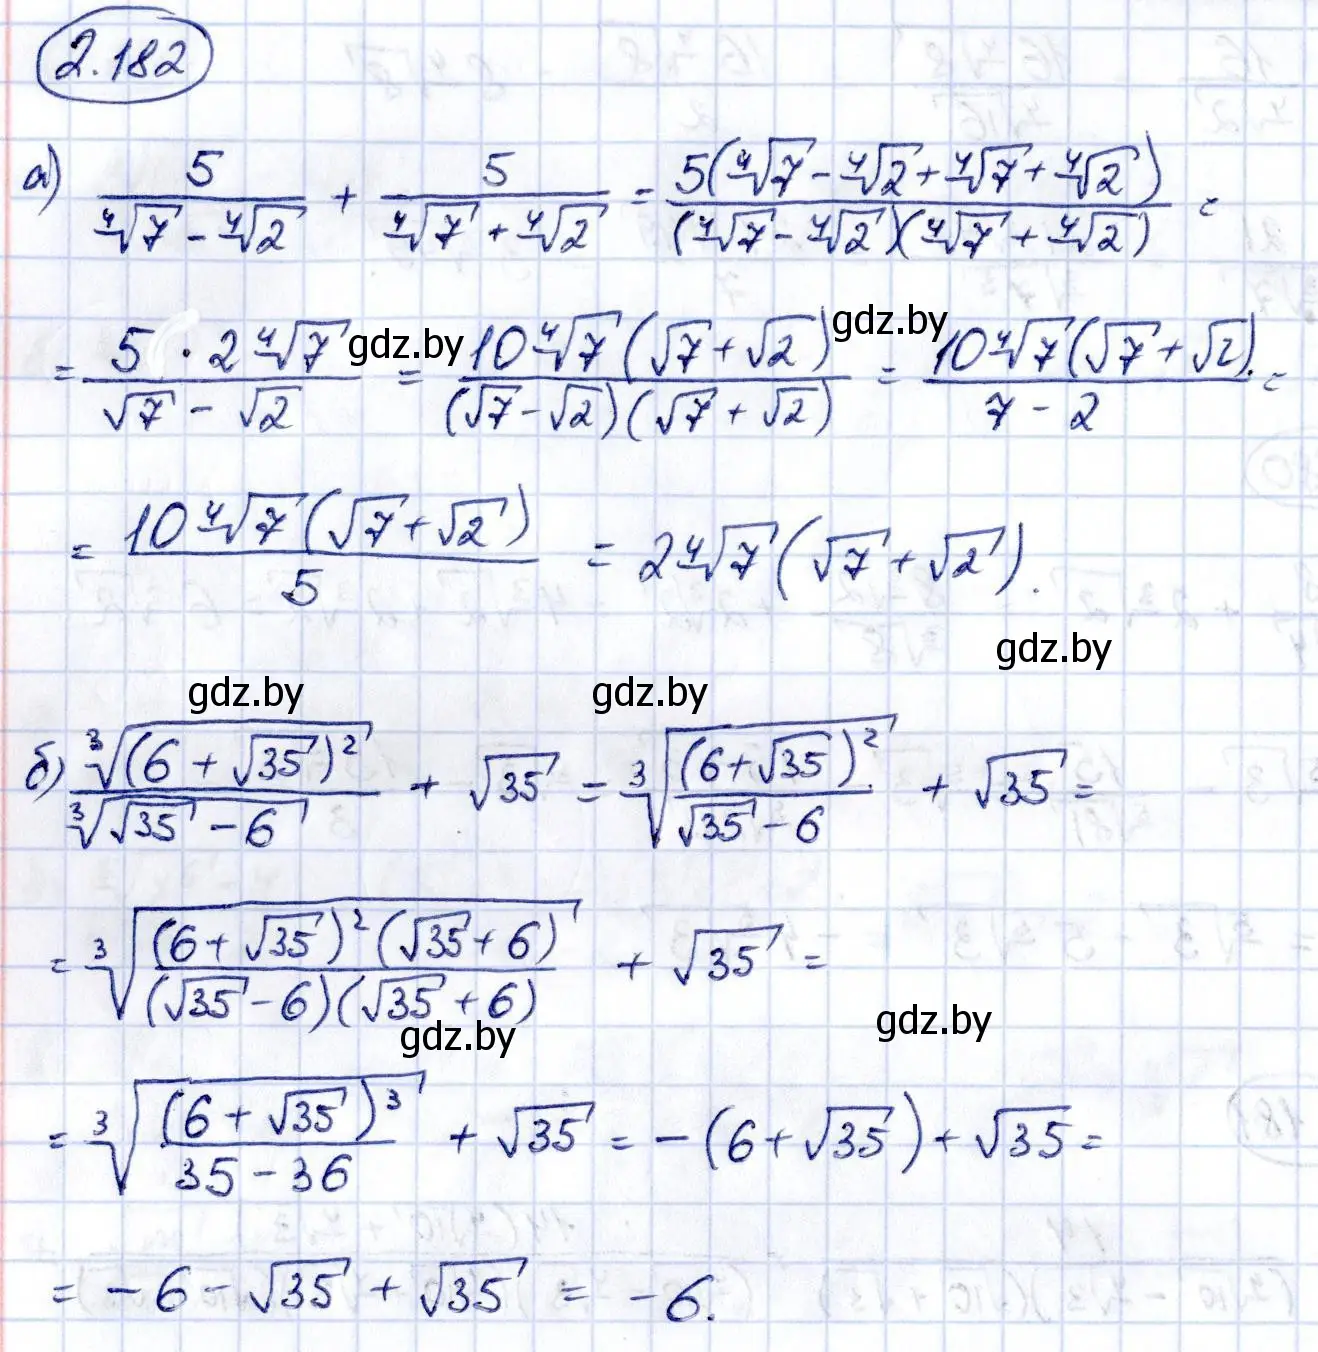 2.182
а) 5/(⁴√7 - ⁴√2) + 5/(⁴√7 + ⁴√2) = 5(⁴√7 - ⁴√2 + ⁴√7 + ⁴√2)/((⁴√7 - ⁴√2)(⁴√7 + ⁴√2)) =
= (5 · 2⁴√7)/(√7 - √2) = 10⁴√7(√7 + √2)/((√7 - √2)(√7 + √2)) = 10⁴√7(√7 + √2)/(7 - 2) =
gdz.by gdz.by
= 10⁴√7(√7 + √2)/5 = 2⁴√7(√7 + √2).
gdz.by
gdz.by gdz.by
б) ³√((6 + √35)²)/³√(√35 - 6) + √35 = ³√((6 + √35)²/(√35 - 6)) + √35 =
= ³√((6 + √35)²(√35 + 6)/((√35 - 6)(√35 + 6))) + √35 =
gdz.by gdz.by
= ³√((6 + √35)³/(35 - 36)) + √35 = -(6 + √35) + √35 =
= -6 - √35 + √35 = -6.